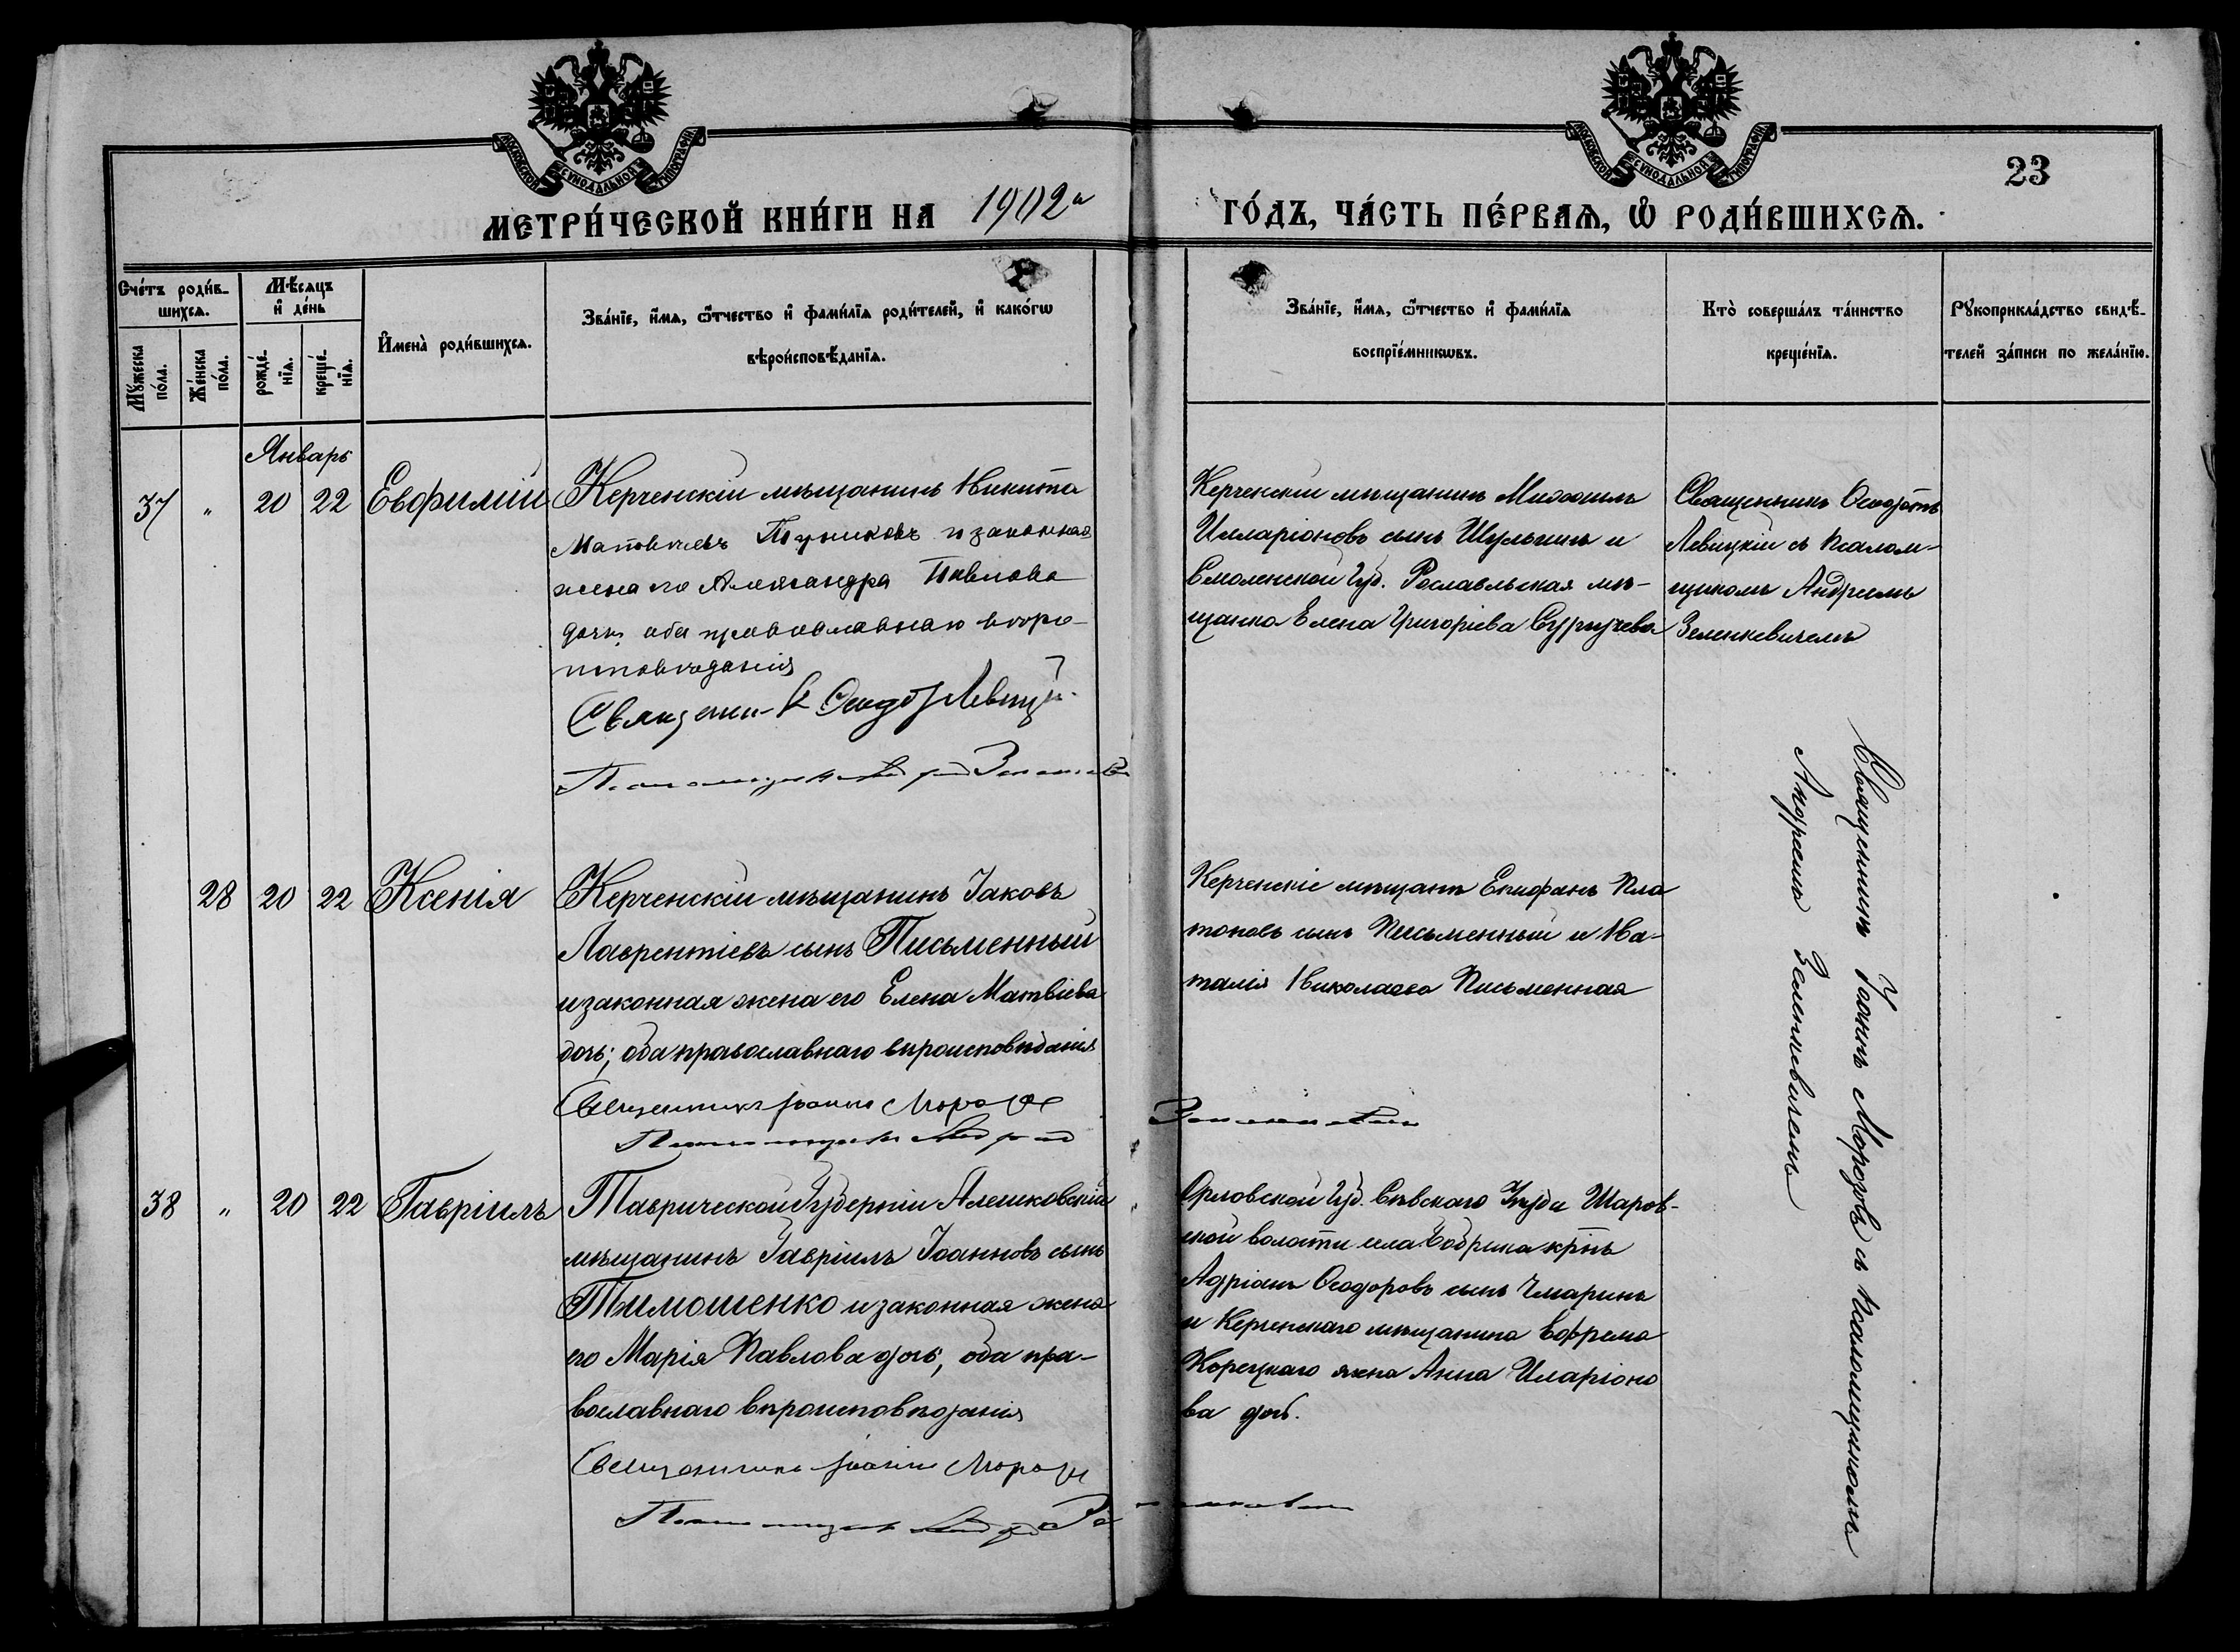 МОСКОВСКОЙ СѴНОДАЛЬНОЙ ТИПОГРАФІИ
МОСКОВСКОЙ СѴНОДАЛЬНОЙ ТИПОГРАФІИ
23
МЕТРИ́ЧЕСКОЙ КНИ́ГИ НА 1902 ГО́ДЪ, ЧА́СТЬ ПЕ́РВАѦ, Ѡ҆ РОДИ́ВШИХСѦ.
Сче́тъ роди́в-
шихсѧ.
Мꙋ́жеска по́ла.
Же́нска по́ла.
Мѣ́сѧцъ
и҆ де́нь
рожде́-
нїѧ.
креще́-
нїѧ.
И҆мена̀ роди́вшихсѧ.
Зва́нїе, и҆́мѧ, ѻ҆́тчество и҆ фами́лїѧ роди́телей, и҆ како́гѡ
вѣроисповѣ́данїѧ.
Зва́нїе, и҆́мѧ, ѻ҆́тчество и҆ фами́лїѧ
воспрїе́мникѡвъ.
Кто̀ соверша́лъ та́инство
креще́нїѧ.
Рꙋкоприкла́дство свидѣ́-
телей за́писи по жела́нїю.
Январь
37 " 20 22 Евфимій
Керченскій мѣщанинъ Никита
Матвѣевъ и законная
жена его Александра Павлова
дочь, оба православнаго вѣро-
исповѣданія
Священникъ Ѳеодотъ Левицкій
Псаломщикъ Андрей Зеленкевичъ
Керченскій мѣщанинъ Михаилъ
Илларіоновъ сынъ Шульгинъ и
Смоленской Губ. Рославльская мѣ-
щанка Елена Григоріева
Священникъ Ѳеодотъ
Левицкій съ псалом-
щикомъ Андреемъ
Зеленкевичемъ
28 20 22 Ксенія
Керченскій мѣщанинъ Іаковъ
Лаврентіевъ сынъ Письменный
и законная жена его Елена Матвіева
дочь; оба православнаго вѣроисповѣданія
Священникъ Іоаннъ Морозовъ
Псаломщикъ Андрей Зеленкевичъ
Керченскіе мѣщане Епифанъ Пла
тоновъ сынъ Письменный и На-
талія Николаева Письменная
Священникъ Іоаннъ Морозовъ съ псаломщикомъ
Андреемъ Зеленкевичемъ
38 " 20 22 Гавріилъ
Таврической Губерніи Алешковскій
мѣщанинъ Гавріилъ Іоанновъ сынъ
Тимошенко и законная жена
его Марія Павлова дочь, оба пра-
вославнаго вѣроисповѣданія
Священникъ Іоаннъ Морозовъ
Псаломщикъ Андрей Зеленкевичъ
Орловской Губ. Сѣвскаго Уѣзда Шаров-
ской волости села Бобрика крнъ
Адріанъ Ѳеодоровъ сынъ Чмаринъ
и Керченскаго мѣщанина Ефрема
Корецкаго жена Анна Иларіоно
ва дочь.